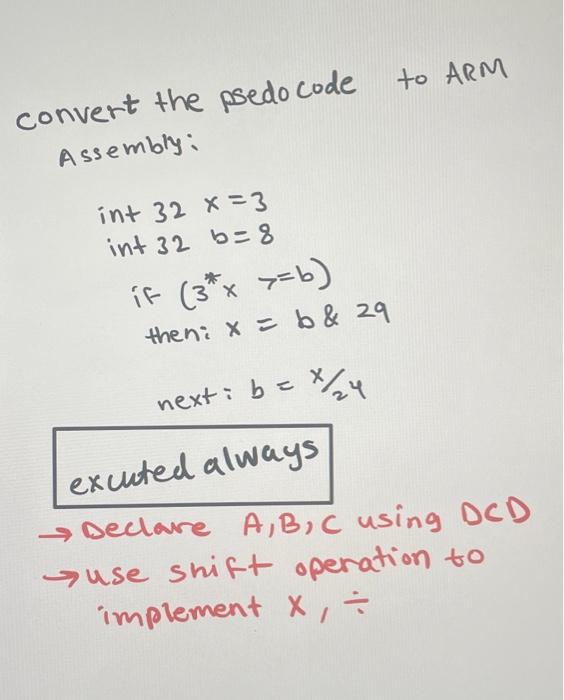 convert the psedo code to ARM
Assembly:
int 32 x = 3
int 32 b = 8
if (3*x >=b)
then: x = b & 29
next: b = x/24
excuted always
→ Declare A,B,C using DCD
→ use shift operation to
implement x, ÷